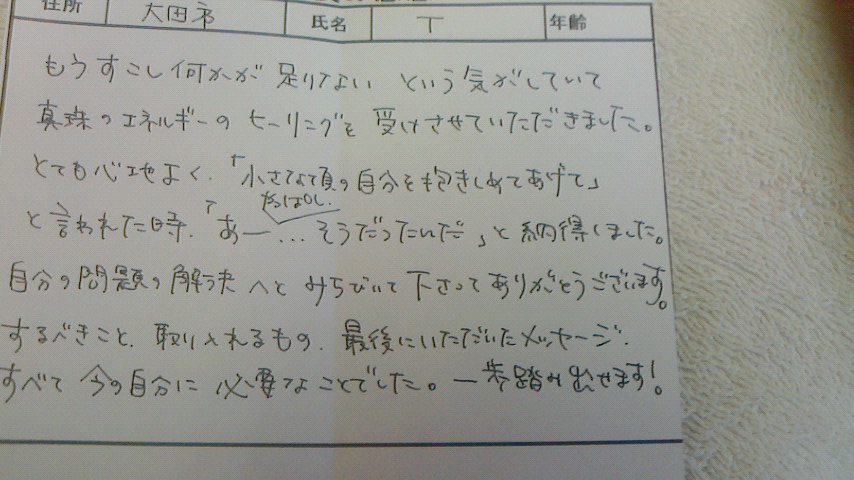 住所 大田市 氏名 T 年齢
もうすこし何かが足りない という気がしていて
真珠のエネルギーのヒーリングを受けさせていただきました。
とても心地よく、「小さな頃の自分を抱きしめてあげて」
と言われた時、「あー…そうだったんだ」と納得しました。
自分の問題の解決へと みちびいて下さってありがとうございます。
するべきこと、取り入れるもの、最後にいただいたメッセージ、
すべて今の自分に必要なことでした。一歩踏み出せます!